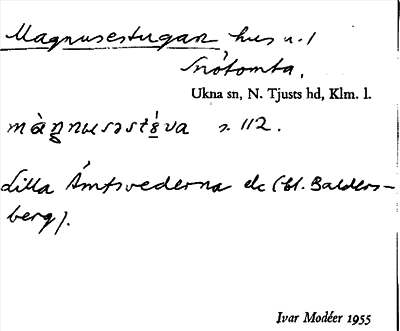 Magnusestugan hus n. l
Snótomta.
Ukna sn, N. Tjusts hd, Klm. l.
s. 112.
Lilla Åmtsvederna etc (bl. Balders-
berg).
Ivar Modéer 1955